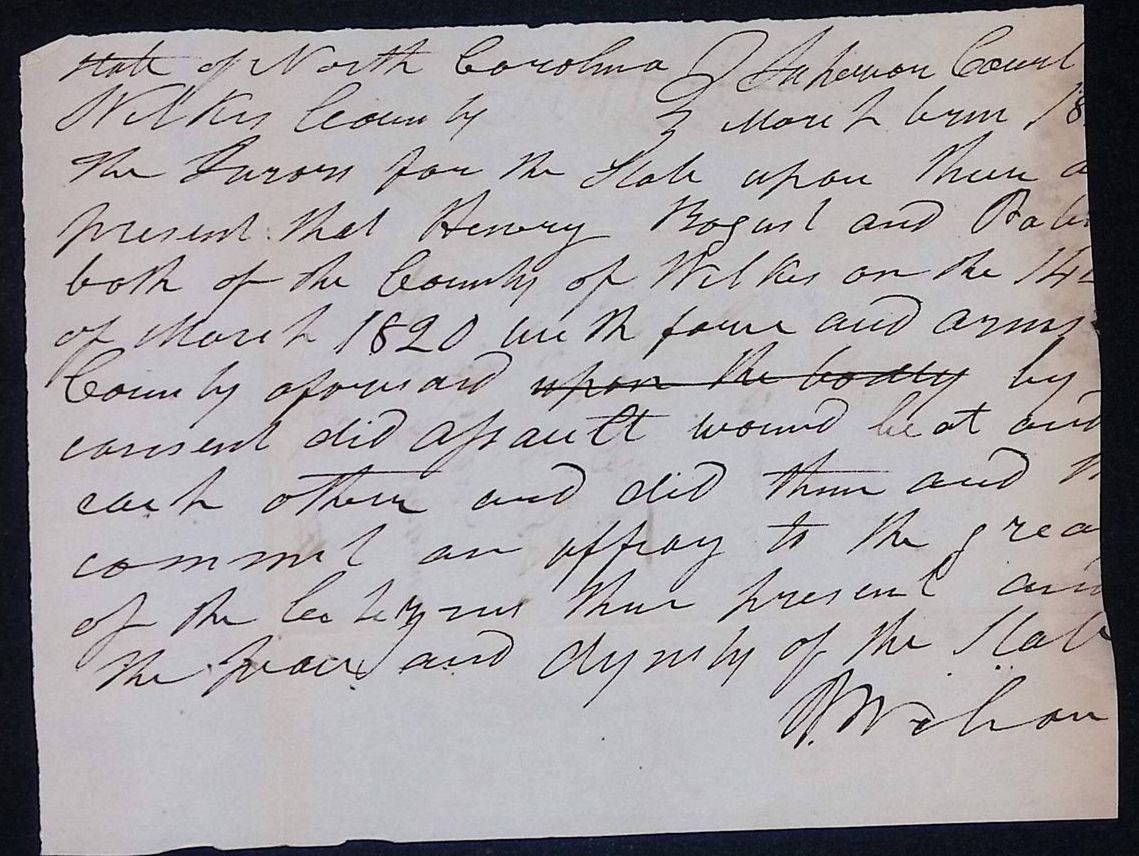 State of North Carolina } Superior Court
Wilkes County } March term 18
the Jurors for the State upon their
present that Henry Bogust and
both of the County of Wilkes on the 14
of March 1820 with force and arms
County aforesaid upon the body by
consent did assault wound beat and
each other and did then and
commit an affray to the grea
of the Citizens then present and
the peace and dignity of the State
Wilson